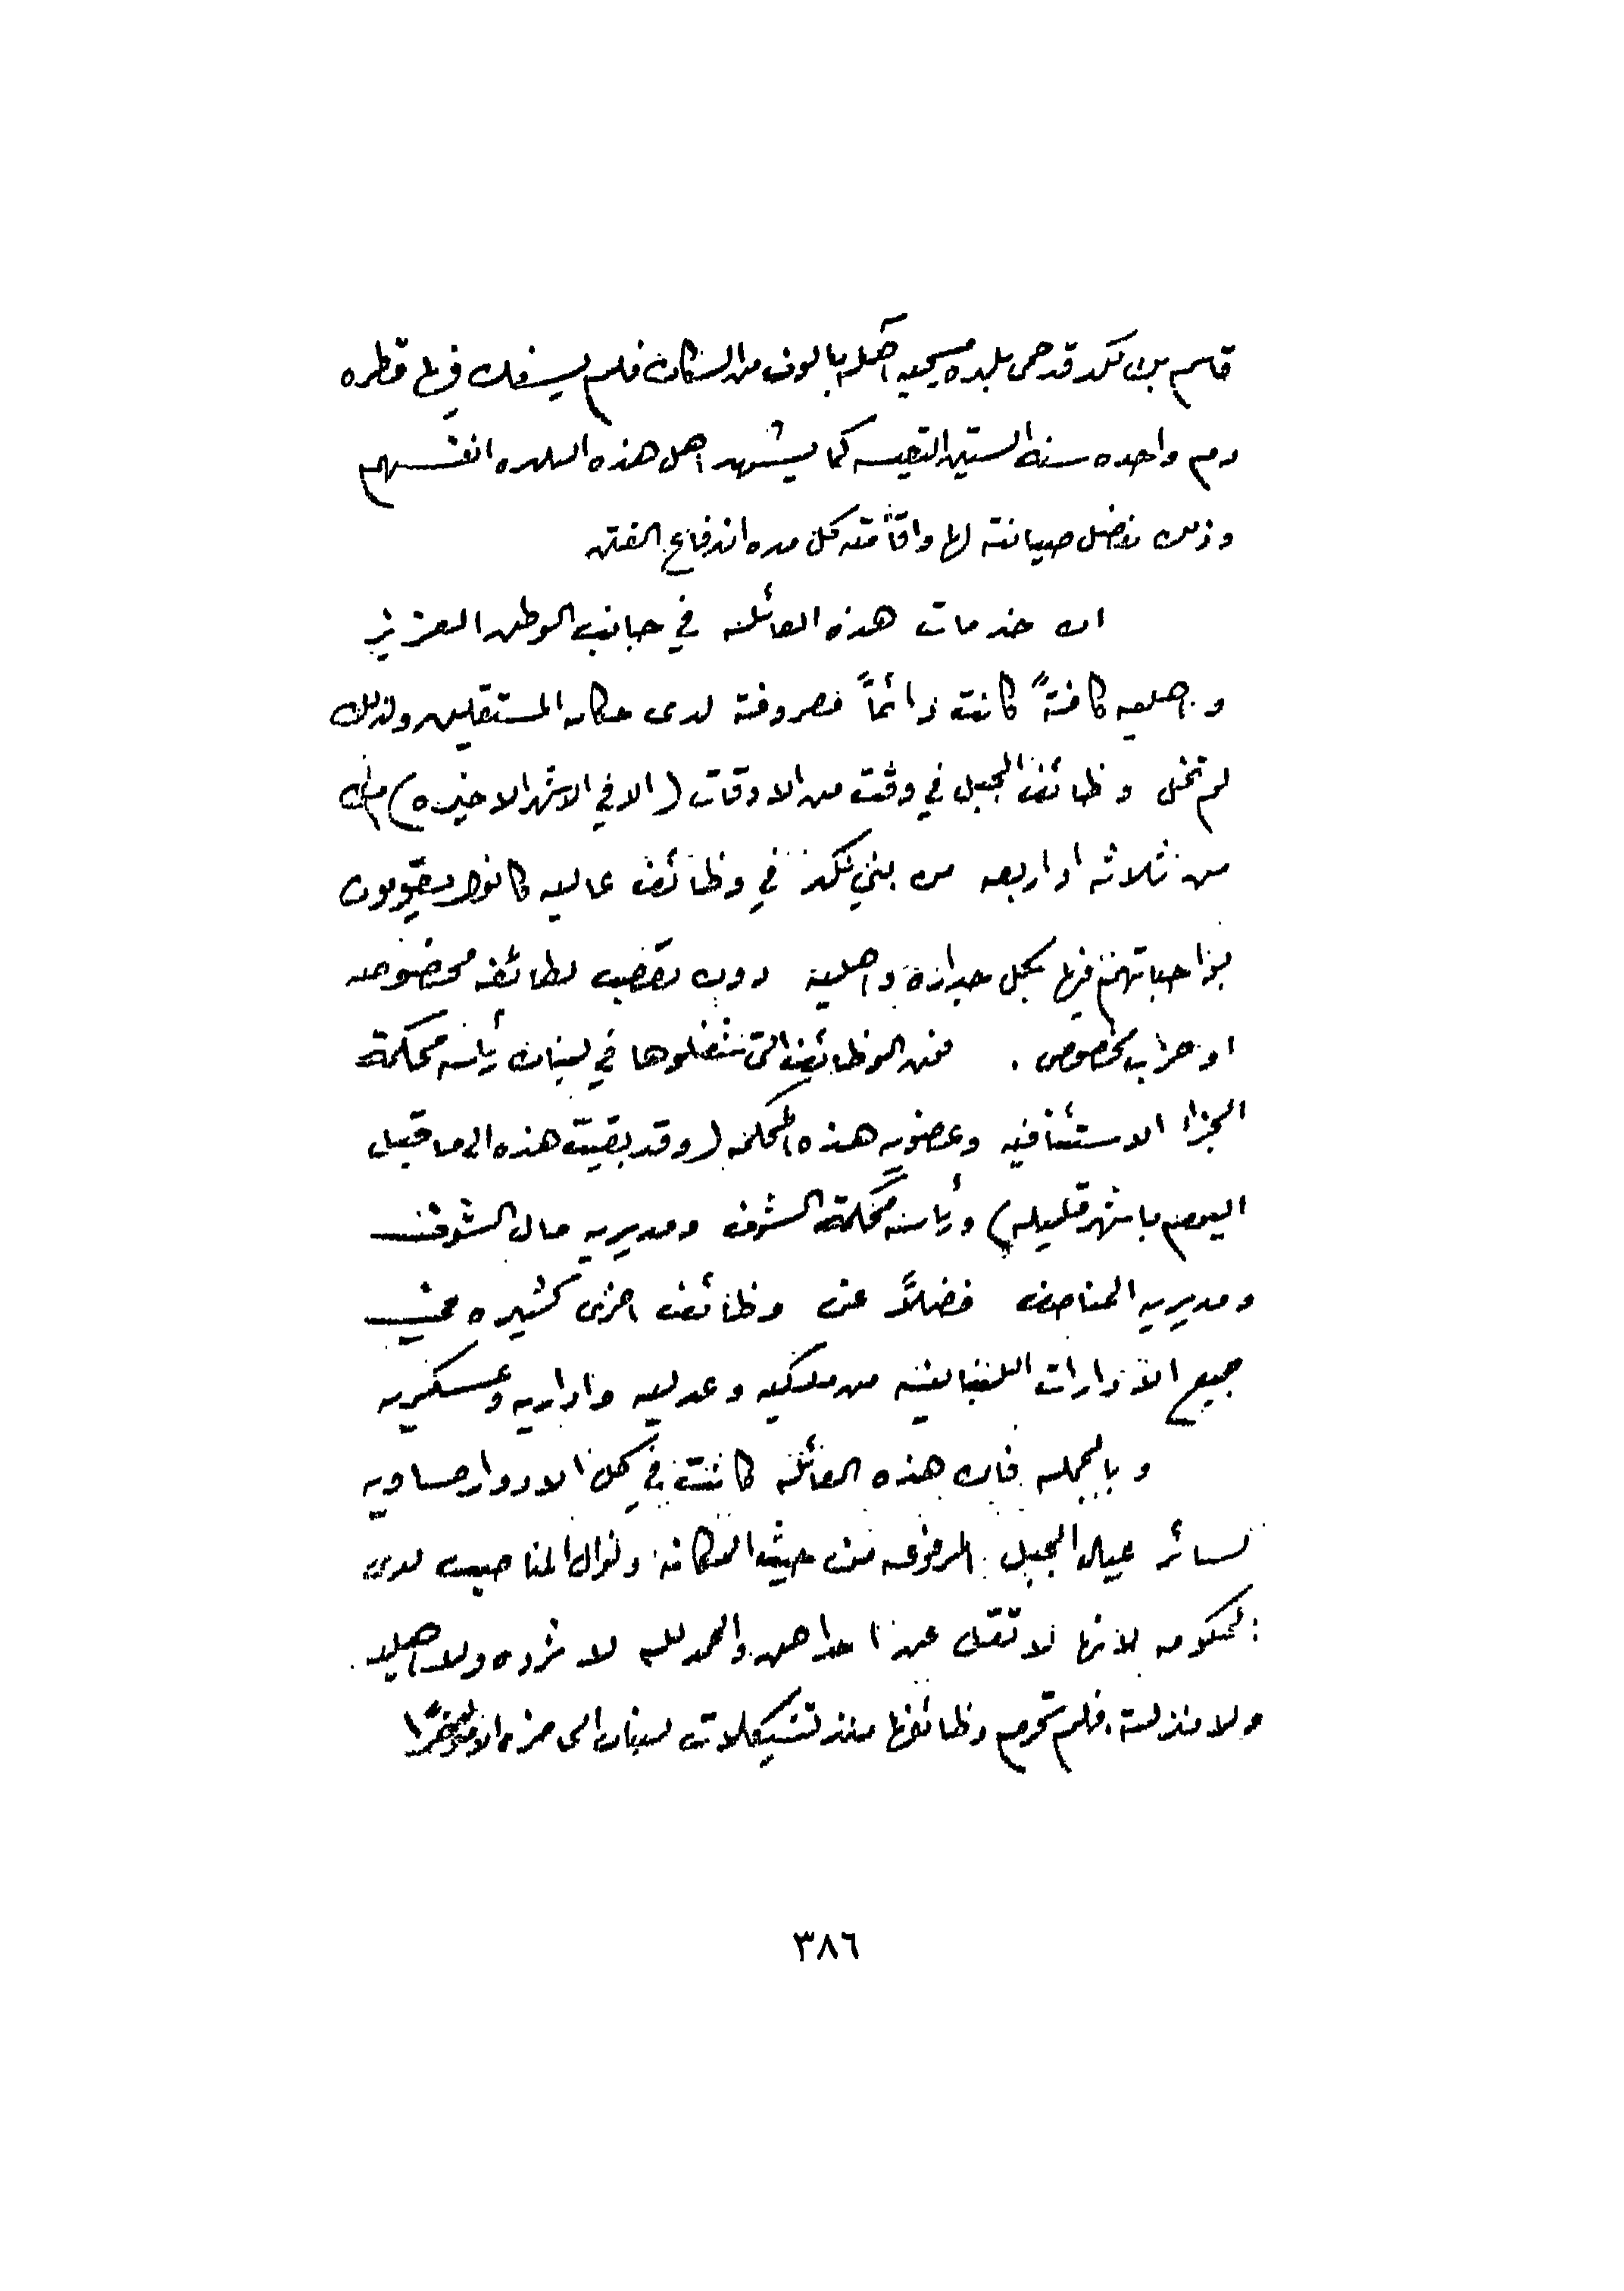 قاسم بك نكد قد حمى بلده مسيحيه آهله بالوف من السكان فلم يسفك فيها قطره
دم واحده سنة الستين التعيسه كما يشهد اهل هذه البلده انفسهم
وذلك بفضل صيانته لها واقامته كل مده اندفاع الفتن
ان خدمات هذه العائلة في جانب الوطن العزيز
واهليه كافةً كانت دائماً معروفة لدى حكامه المستقلين ولذلك
لم تخل وظائف الجبل في وقت من الاوقات (الا في الاشهر الاخيره)
من ثلاثه او اربعه من بني نكد في وظائف عاليه كانوا يقومون
بواجباتهم فيها بكل جداره واهلية دون تعصب لطائفه مخصوصه
او حزب مخصوص . فمن الوظائف التي شغلوها في لبنان رئاسة محكمة
الجزاء الاستئنافيه وعضويه هذه المحكمه (وقد بقيت هذه الى ما قبل
اليوم باشهر قليله) ورئاسة محكمة الشوف ومديريه مال الشوف
ومديريه المناصف فضلاً عن وظائف اخرى كثيره في
جميع الادارات اللبنانية من ملكيه وعدليه واداريه وعسكريه
وبالجمله فان هذه العائلة كانت في كل الادوار مساويه
لسائر عيال الجبل المرفوعه من حيث المكانة ونوال المناصب لدى
الحكومه لانها لا تقل عن احداهن والحمد لله لا ثروه ولا اهليه
ولا منزلة . فلم تحرم وظائفها منذ تشكيلات لبنان الى هذه
٣٨٦